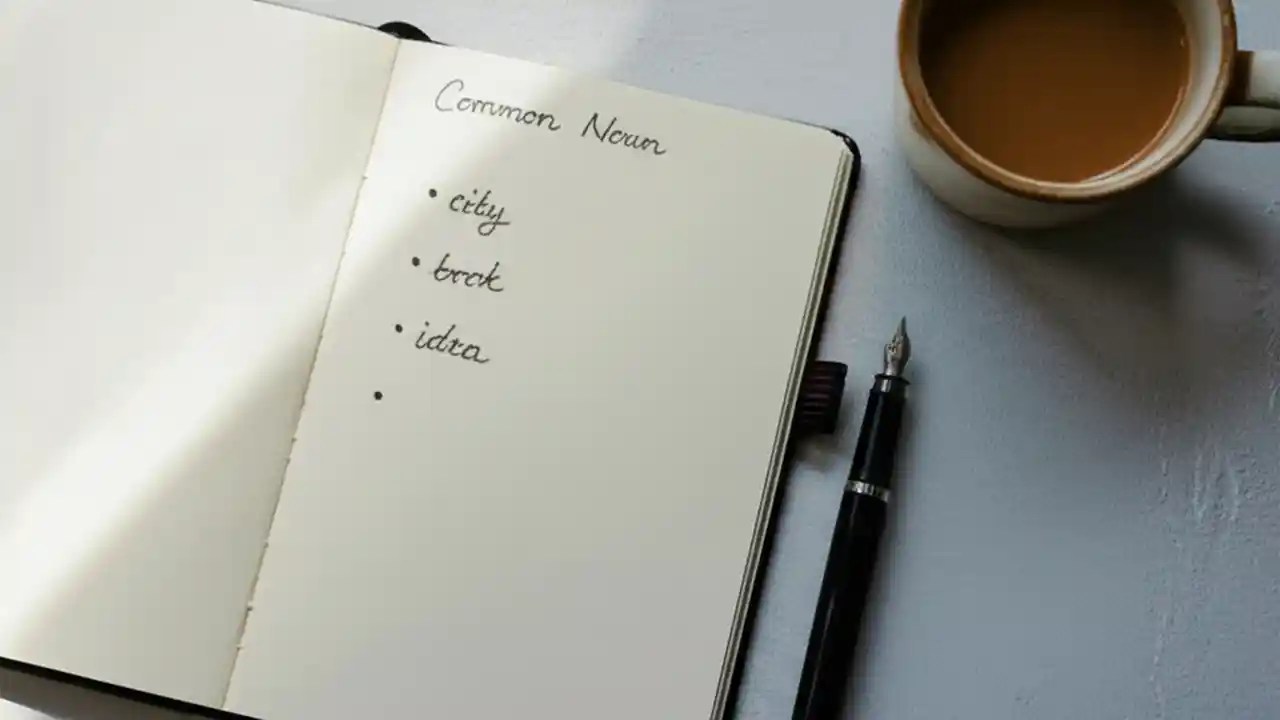 Common Noun
• city
• book
• idea
•